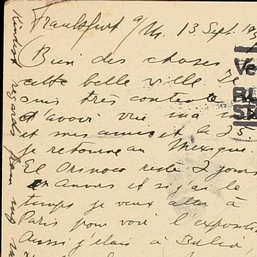 Francfurt a/M. 13 Sept. 193
Bien des choses
cette belle ville. Je
suis très contente
d'avoir vue ma
et mes amies et le 25
je retourne au Mexique.
El Orinoco reste 2 jours
en Anvers et si j'ai le
temps je veux aller à
Paris pour voir l'exposition
Aussi j'étais à Bale,
Kindest regards from my